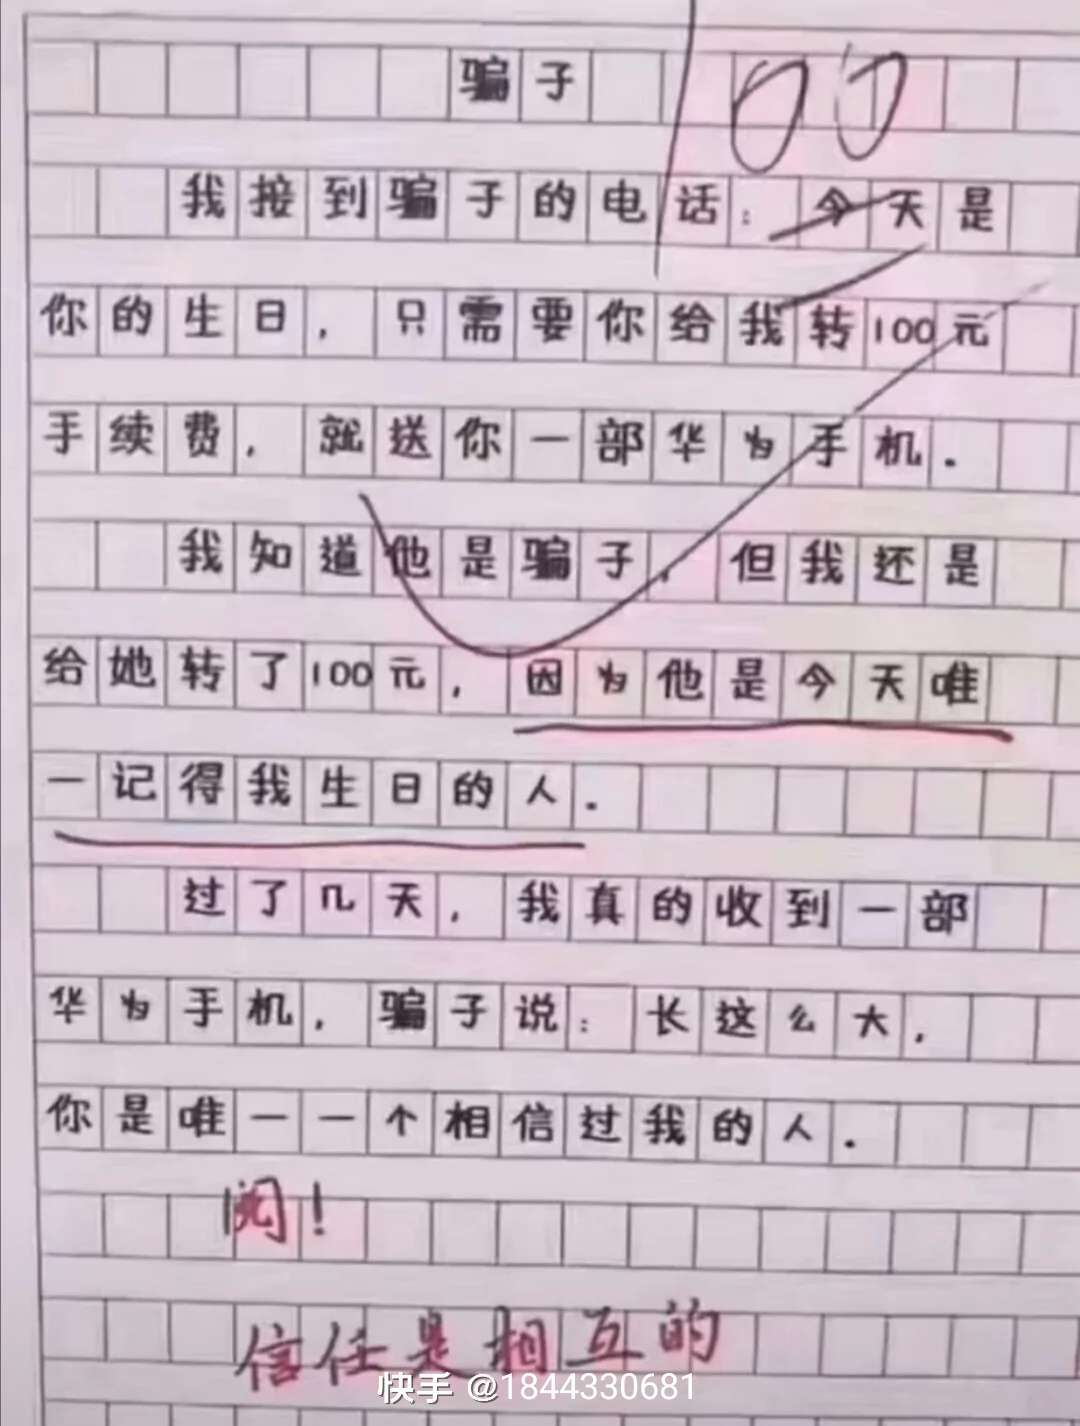 骗子
100
我接到骗子的电话：今天是
你的生日，只需要你给我转100元
手续费，就送你一部华为手机.
我知道他是骗子，但我还是
给她转了100元，因为他是今天唯
一记得我生日的人.
过了几天，我真的收到一部
华为手机，骗子说：长这么大，
你是唯一一个相信过我的人.
阅！
信任是相互的
快手 @1844330681